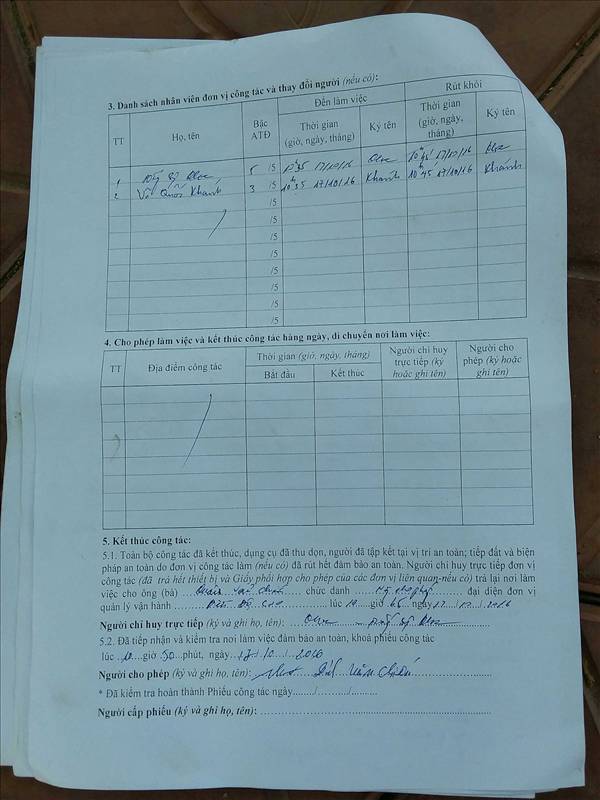 3. Danh sách nhân viên đơn vị công tác và thay đổi người (nếu có):
TT Họ, tên Bậc ATĐ Đến làm việc Rút khỏi
Thời gian (giờ, ngày, tháng) Ký tên Thời gian (giờ, ngày, tháng) Ký tên
1 5 /5 17/10/16 17/10/16
2 Võ Quốc Khánh 3 /5 10h35 17/10/16 Khánh 10h45 17/10/16 Khánh
/5
/5
/5
/5
/5
/5
/5
/5
4. Cho phép làm việc và kết thúc công tác hàng ngày, di chuyển nơi làm việc:
TT Địa điểm công tác Thời gian (giờ, ngày, tháng) Người chỉ huy trực tiếp (ký hoặc ghi tên) Người cho phép (ký hoặc ghi tên)
Bắt đầu Kết thúc
5. Kết thúc công tác:
5.1. Toàn bộ công tác đã kết thúc, dụng cụ đã thu dọn, người đã tập kết tại vị trí an toàn; tiếp đất và biện
pháp an toàn do đơn vị công tác làm (nếu có) đã rút hết đảm bảo an toàn. Người chỉ huy trực tiếp đơn vị
công tác (đã trả hết thiết bị và Giấy phối hợp cho phép của các đơn vị liên quan-nếu có) trả lại nơi làm
việc cho ông (bà) chức danh đại diện đơn vị
quản lý vận hành lúc 10 giờ 45 ngày 17 / 10 / 2016
Người chỉ huy trực tiếp (ký và ghi họ, tên):
5.2. Đã tiếp nhận và kiểm tra nơi làm việc đảm bảo an toàn, khoá phiếu công tác
lúc 10 giờ 50 phút, ngày 17 / 10 / 2016
Người cho phép (ký và ghi họ, tên):
* Đã kiểm tra hoàn thành Phiếu công tác ngày......./.........../..........
Người cấp phiếu (ký và ghi họ, tên):